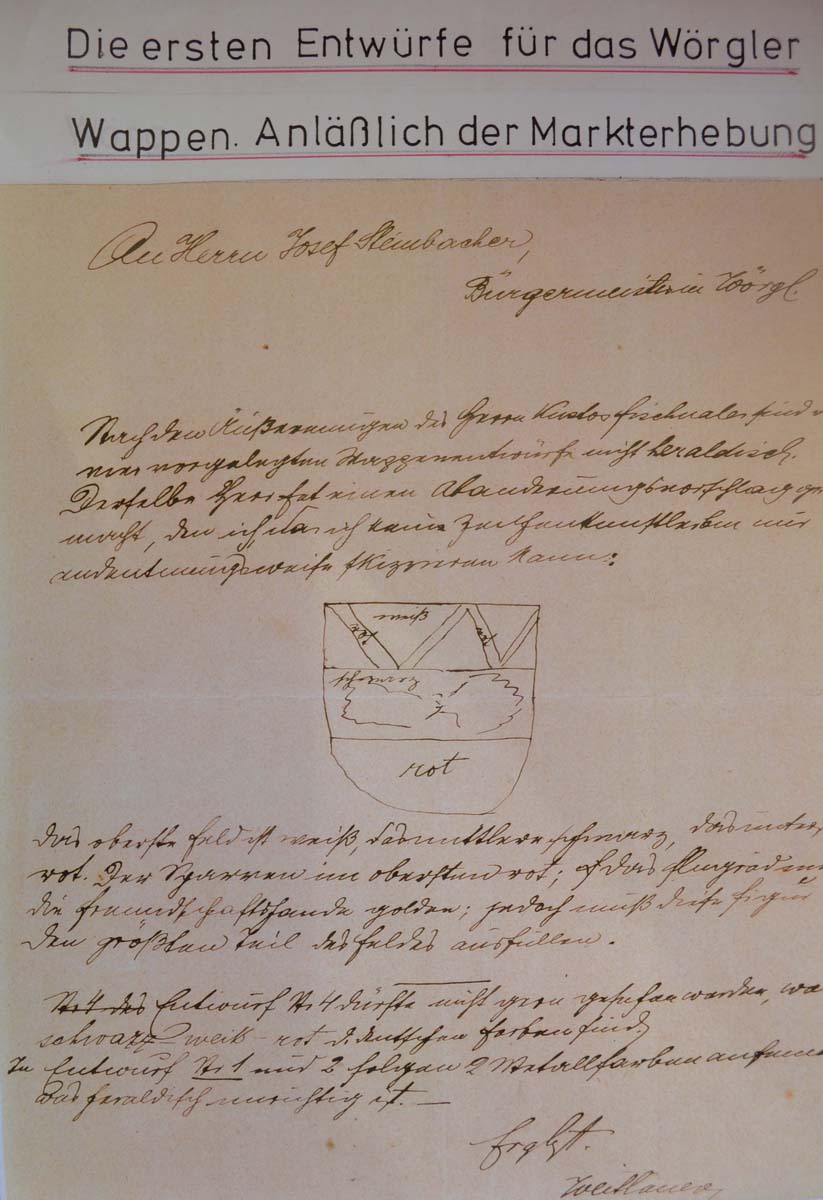 Die ersten Entwürfe für das Wörgler
Wappen. Anläßlich der Markterhebung
An Herrn Josef Steinbacher,
Bürgermeister in Wörgl.
Nach den Äußerungen des Herrn Kustos Fischnaler sind
vier vorgelegten Wappenentwürfe nicht heraldisch.
Derselbe Herr hat einen Abänderungsvorschlag ge-
macht, den ich, da ich kein Zeichenkünstler bin nur
andeutungsweise skizzieren kann:
weiß
rot rot
schwarz
rot
Das oberste Feld ist weiß, das mittlere schwarz, das untere,
rot. Der Sparren im obersten rot; das Flugrad
die Freundschaftshände golden; jedoch muß diese Figur
den größten Teil des Feldes ausfüllen.
Nr 4 des Entwurf Nr 4 dürfte nicht gern gesehen werden,
schwarz weiß - rot d. deutschen Farben sind.
In Entwurf Nr 1 und 2 folgen 2 Metallfarben
was heraldisch unrichtig ist. —